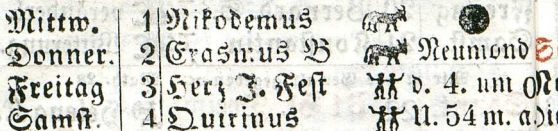 Mittw. 1 Nikodemus
Donner. 2 Erasmus B Neumond
Freitag 3 Herz J. Fest d. 4. um
Samst. 4 Quirinus U. 54 m.